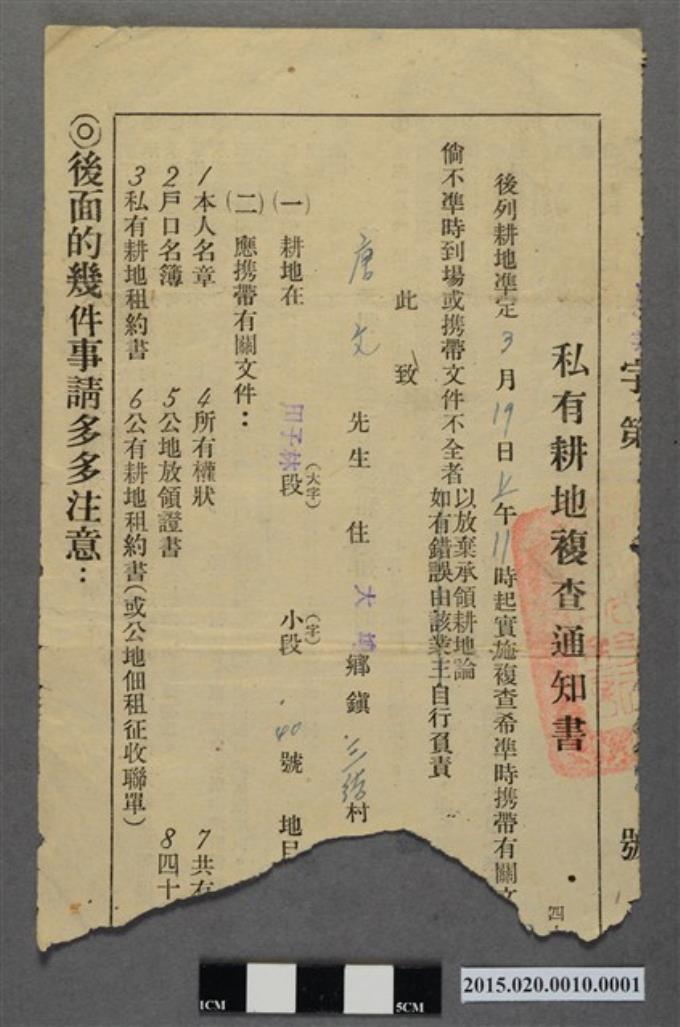 字第
號
私有耕地複查通知書
四
後列耕地準定3月19日上午11時起實施複查希準時携帶有關文
倘不準時到場或携帶文件不全者以放棄承領耕地論
如有錯誤由該業主自行負責
此致
唐文先生 住大埤鄉鎮三結村
(一) 耕地在田子林段(大字) 小段(字) 40號 地目
(二) 應携帶有關文件：
1本人名章 4所有權狀 7共有
2戶口名簿 5公地放領證書 8四十
3私有耕地租約書 6公有耕地租約書(或公地佃租征收聯單)
◎後面的幾件事請多多注意：
1CM 5CM
2015.020.0010.0001